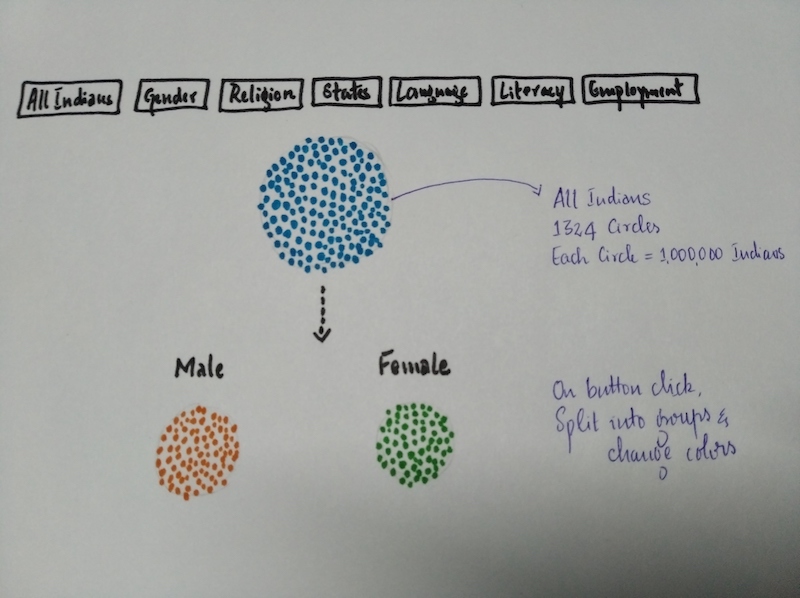 All Indians Gender Religion States Language Literacy Employment
All Indians
1324 Circles
Each Circle = 1,000,000 Indians
Male Female
On button click,
Split into groups &
change colors